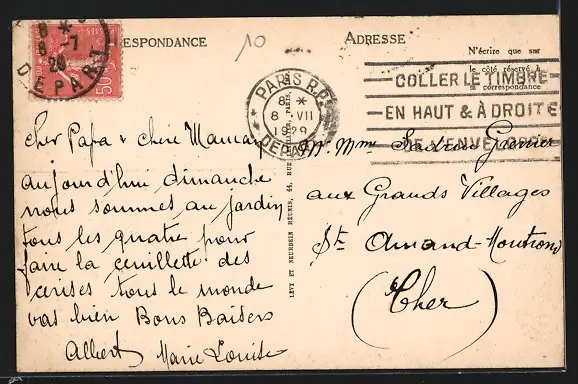 RESPONDANCE
10
ADRESSE
N'écrire que sur
le côté réservé à
la correspondance
8 *
8 -7
29
DEPART
50c
PARIS R.P.
8 *
8 VII
1929
DEPART
COLLER LE TIMBRE
EN HAUT & À DROITE
DE L'ENVELOPPE
LÉVY ET NEURDEIN RÉUNIS, 44, RUE
PARIS
Cher Papa & chère Maman
aujourd'hui dimanche
nous sommes au jardin
tous les quatre pour
faire la ceuillette des
cerises tous le monde
vas bien Bons Baisers
Albert Marie Louise
Mr Mme
aux Grands Villages
St Amand-Montrond
(Cher)